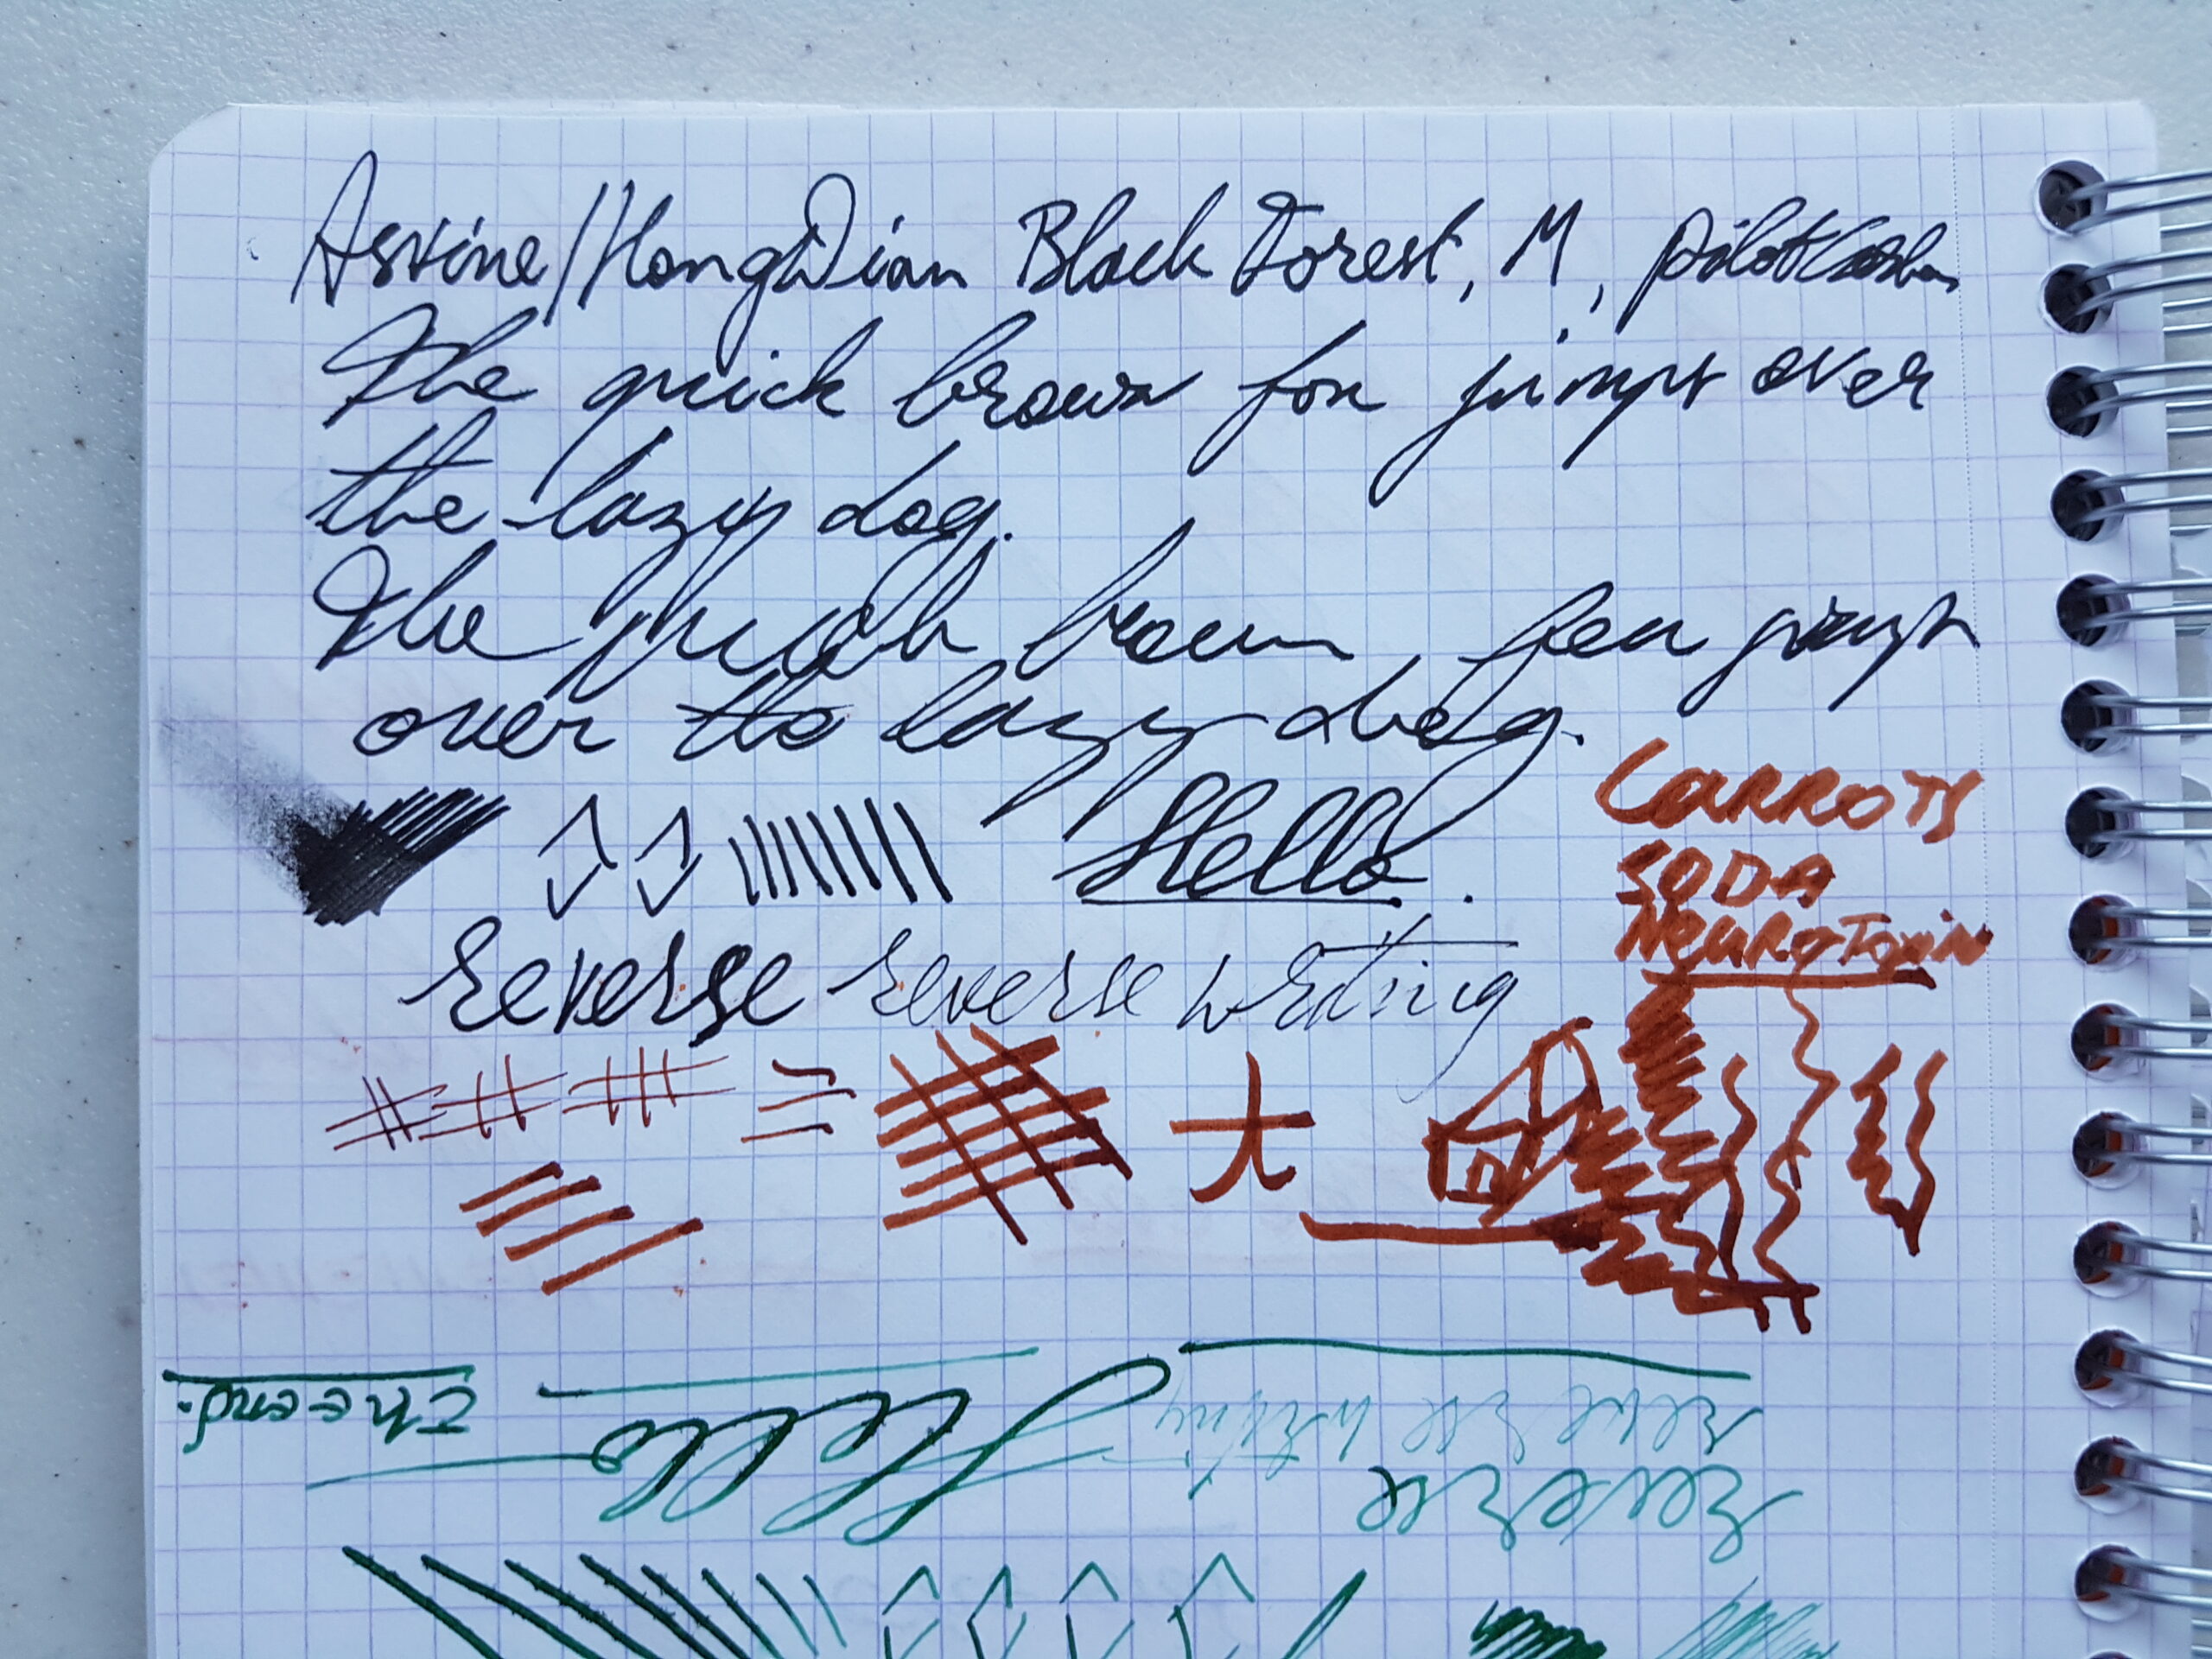 Asvine/HongDian Black Forest, M, pilot Carbon
The quick brown fox jumps over
the lazy dog.
The quick brown fox jumps
over the lazy dog.
Hello.
CARROTS
SODA
NeuroToxin
Reverse reverse writing
大
the end.
Hello
reverse writing
Reverse